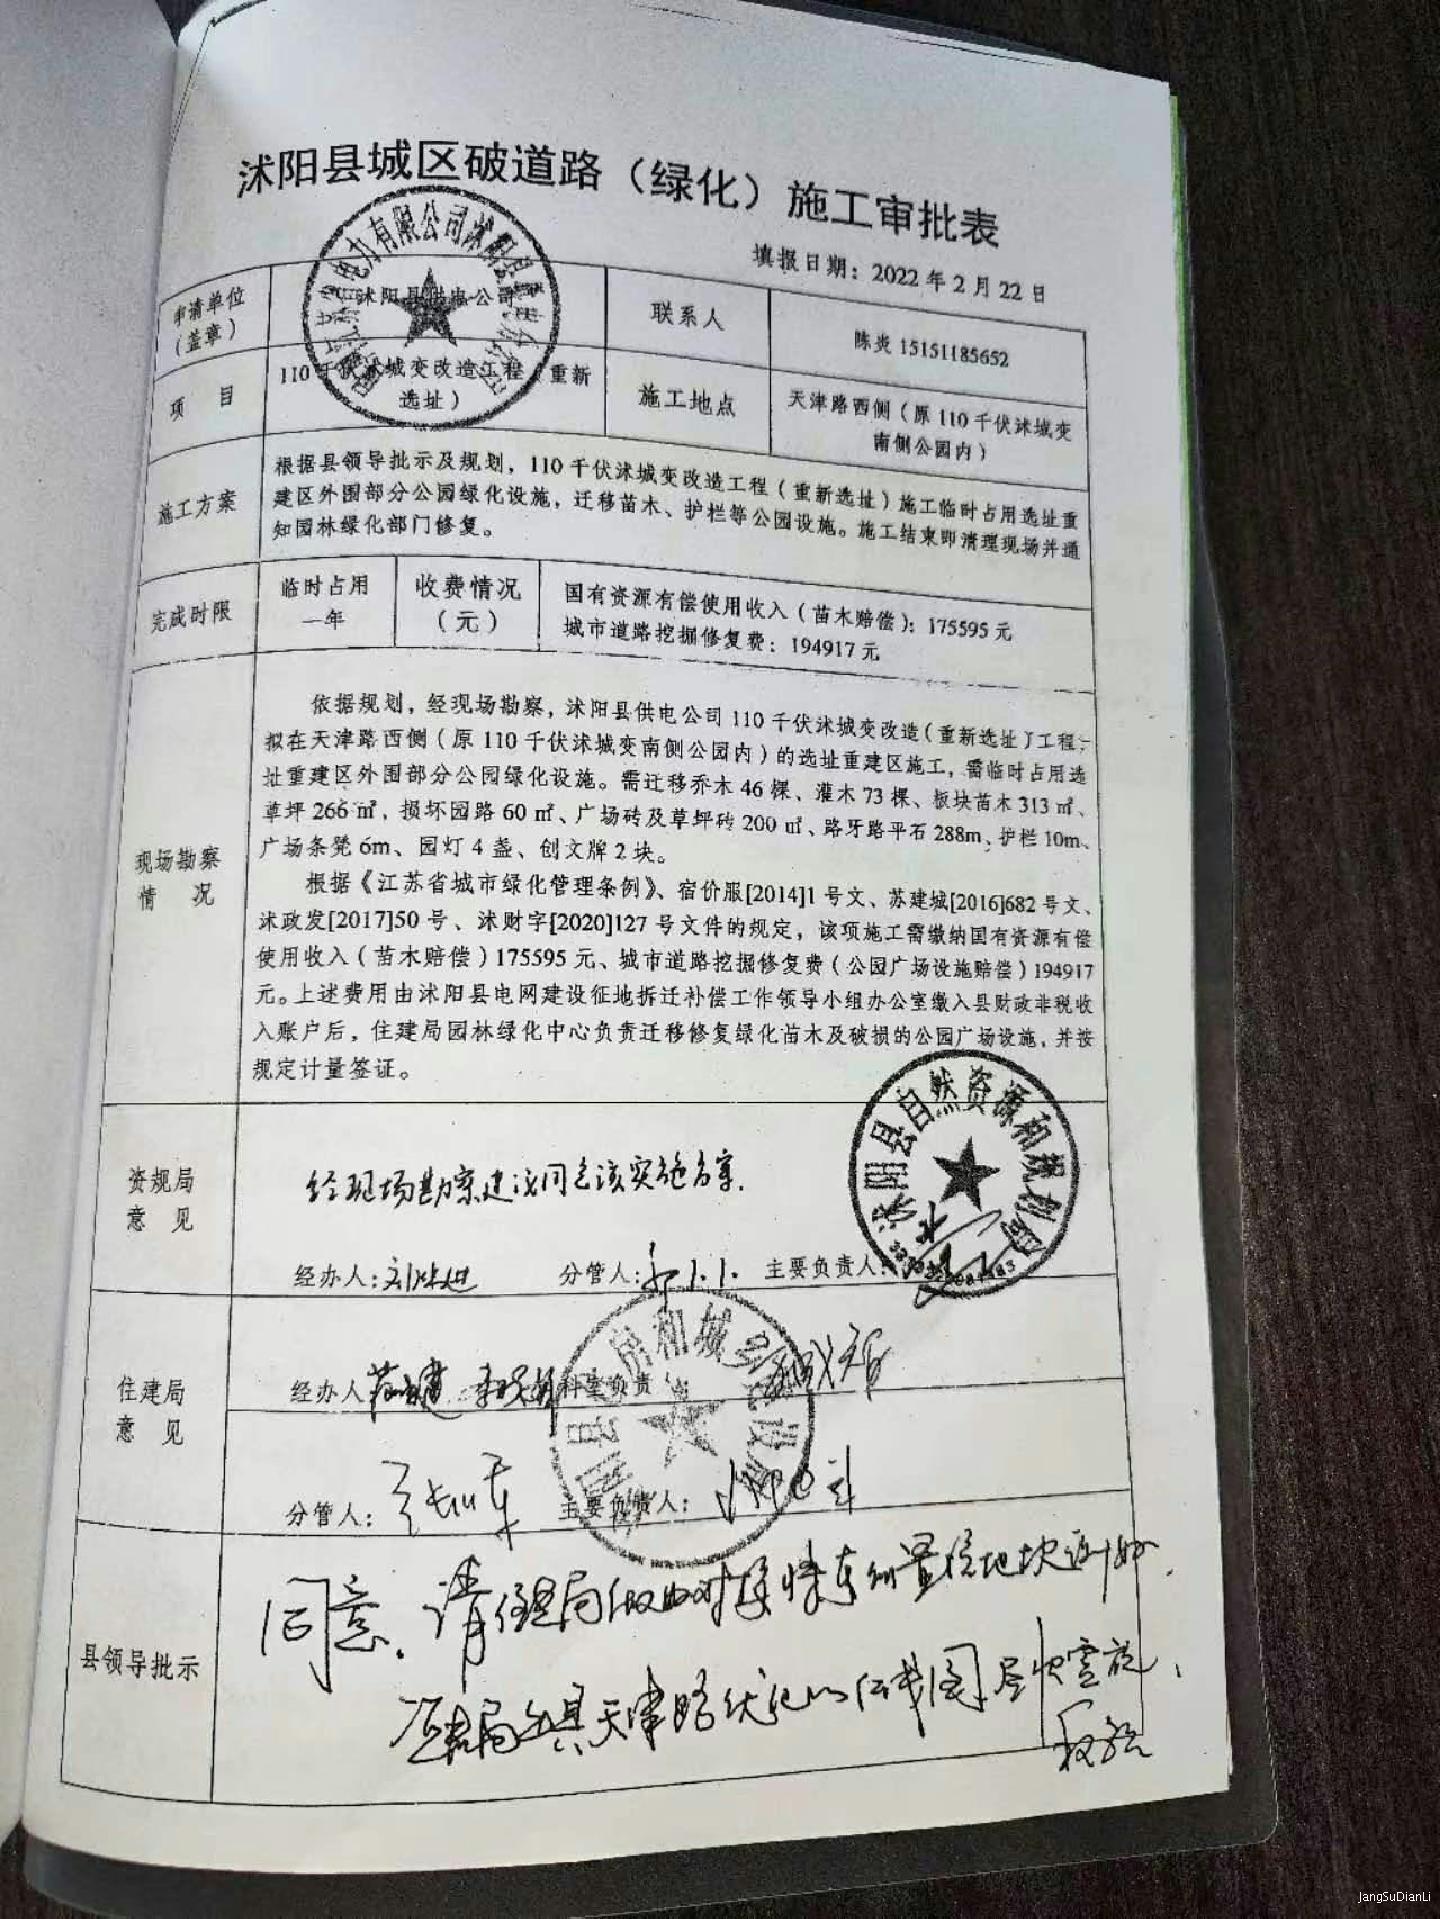 沭阳县城区破道路（绿化）施工审批表
填报日期：2022年2月22日
申请单位（盖章）
沭阳县供电公司
联系人
陈炎 15151185652
项 目
110千伏沭城变改造工程（重新选址）
施工地点
天津路西侧（原110千伏沭城变南侧公园内）
施工方案
根据县领导批示及规划，110千伏沭城变改造工程（重新选址）施工临时占用选址重
建区外围部分公园绿化设施，迁移苗木、护栏等公园设施。施工结束即清理现场并通
知园林绿化部门修复。
完成时限
临时占用一年
收费情况（元）
国有资源有偿使用收入（苗木赔偿）：175595元
城市道路挖掘修复费：194917元
现场勘察情 况
依据规划，经现场勘察，沭阳县供电公司110千伏沭城变改造（重新选址）工程，
拟在天津路西侧（原110千伏沭城变南侧公园内）的选址重建区施工，需临时占用选
址重建区外围部分公园绿化设施。需迁移乔木46棵、灌木73棵、板块苗木313㎡、
草坪266㎡，损坏园路60㎡、广场砖及草坪砖200㎡、路牙路平石288m、护栏10m、
广场条凳6m、园灯4盏、创文牌2块。
根据《江苏省城市绿化管理条例》、宿价服[2014]1号文、苏建城[2016]682号文、
沭政发[2017]50号、沭财字[2020]127号文件的规定，该项施工需缴纳国有资源有偿
使用收入（苗木赔偿）175595元、城市道路挖掘修复费（公园广场设施赔偿）194917
元。上述费用由沭阳县电网建设征地拆迁补偿工作领导小组办公室缴入县财政非税收
入账户后，住建局园林绿化中心负责迁移修复绿化苗木及破损的公园广场设施，并按
规定计量签证。
资规局意 见
经现场勘察建议同意该实施方案.
沭阳县自然资源和规划局
经办人：
分管人：
主要负责人：
住建局意 见
经办人
科室负责
分管人：
主要负责人：
县领导批示
同意. 请住建局
天津路
JangSuDianLi